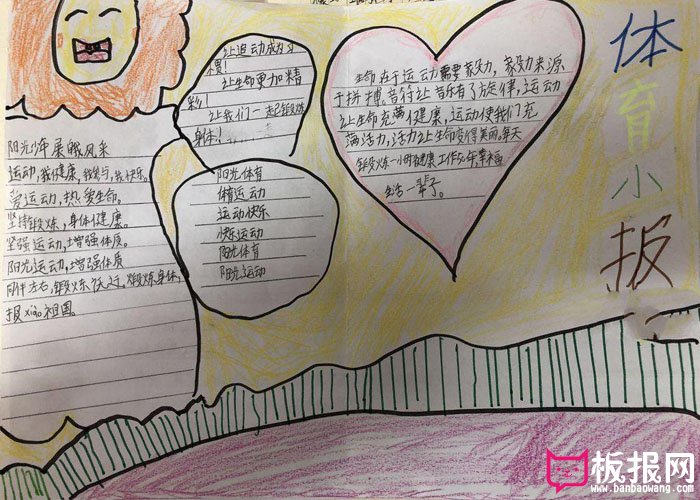 体育小报
让运动成为习
惯！
让生命更加精
彩！
让我们一起锻炼
身体！
生命在于运动需要豪动力，豪动力来源
于拼搏，音符让音乐有了旋律，运动
让生命充满健康，运动使我们充
满活力，活力让生命变得美丽。每天
锻炼一小时健康工作
生活一辈子。
阳光少年展我风采
运动，我健康，我参与，我快乐。
爱运动，热爱生命。
坚持锻炼，身体健康。
坚强运动，增强体质。
阳光运动，增强体质
同伴左右，锻炼
报xiào祖国。
阳光体育
体育运动
运动快乐
快乐运动
阳光体育
阳光运动
板报网
www.banbaowang.com